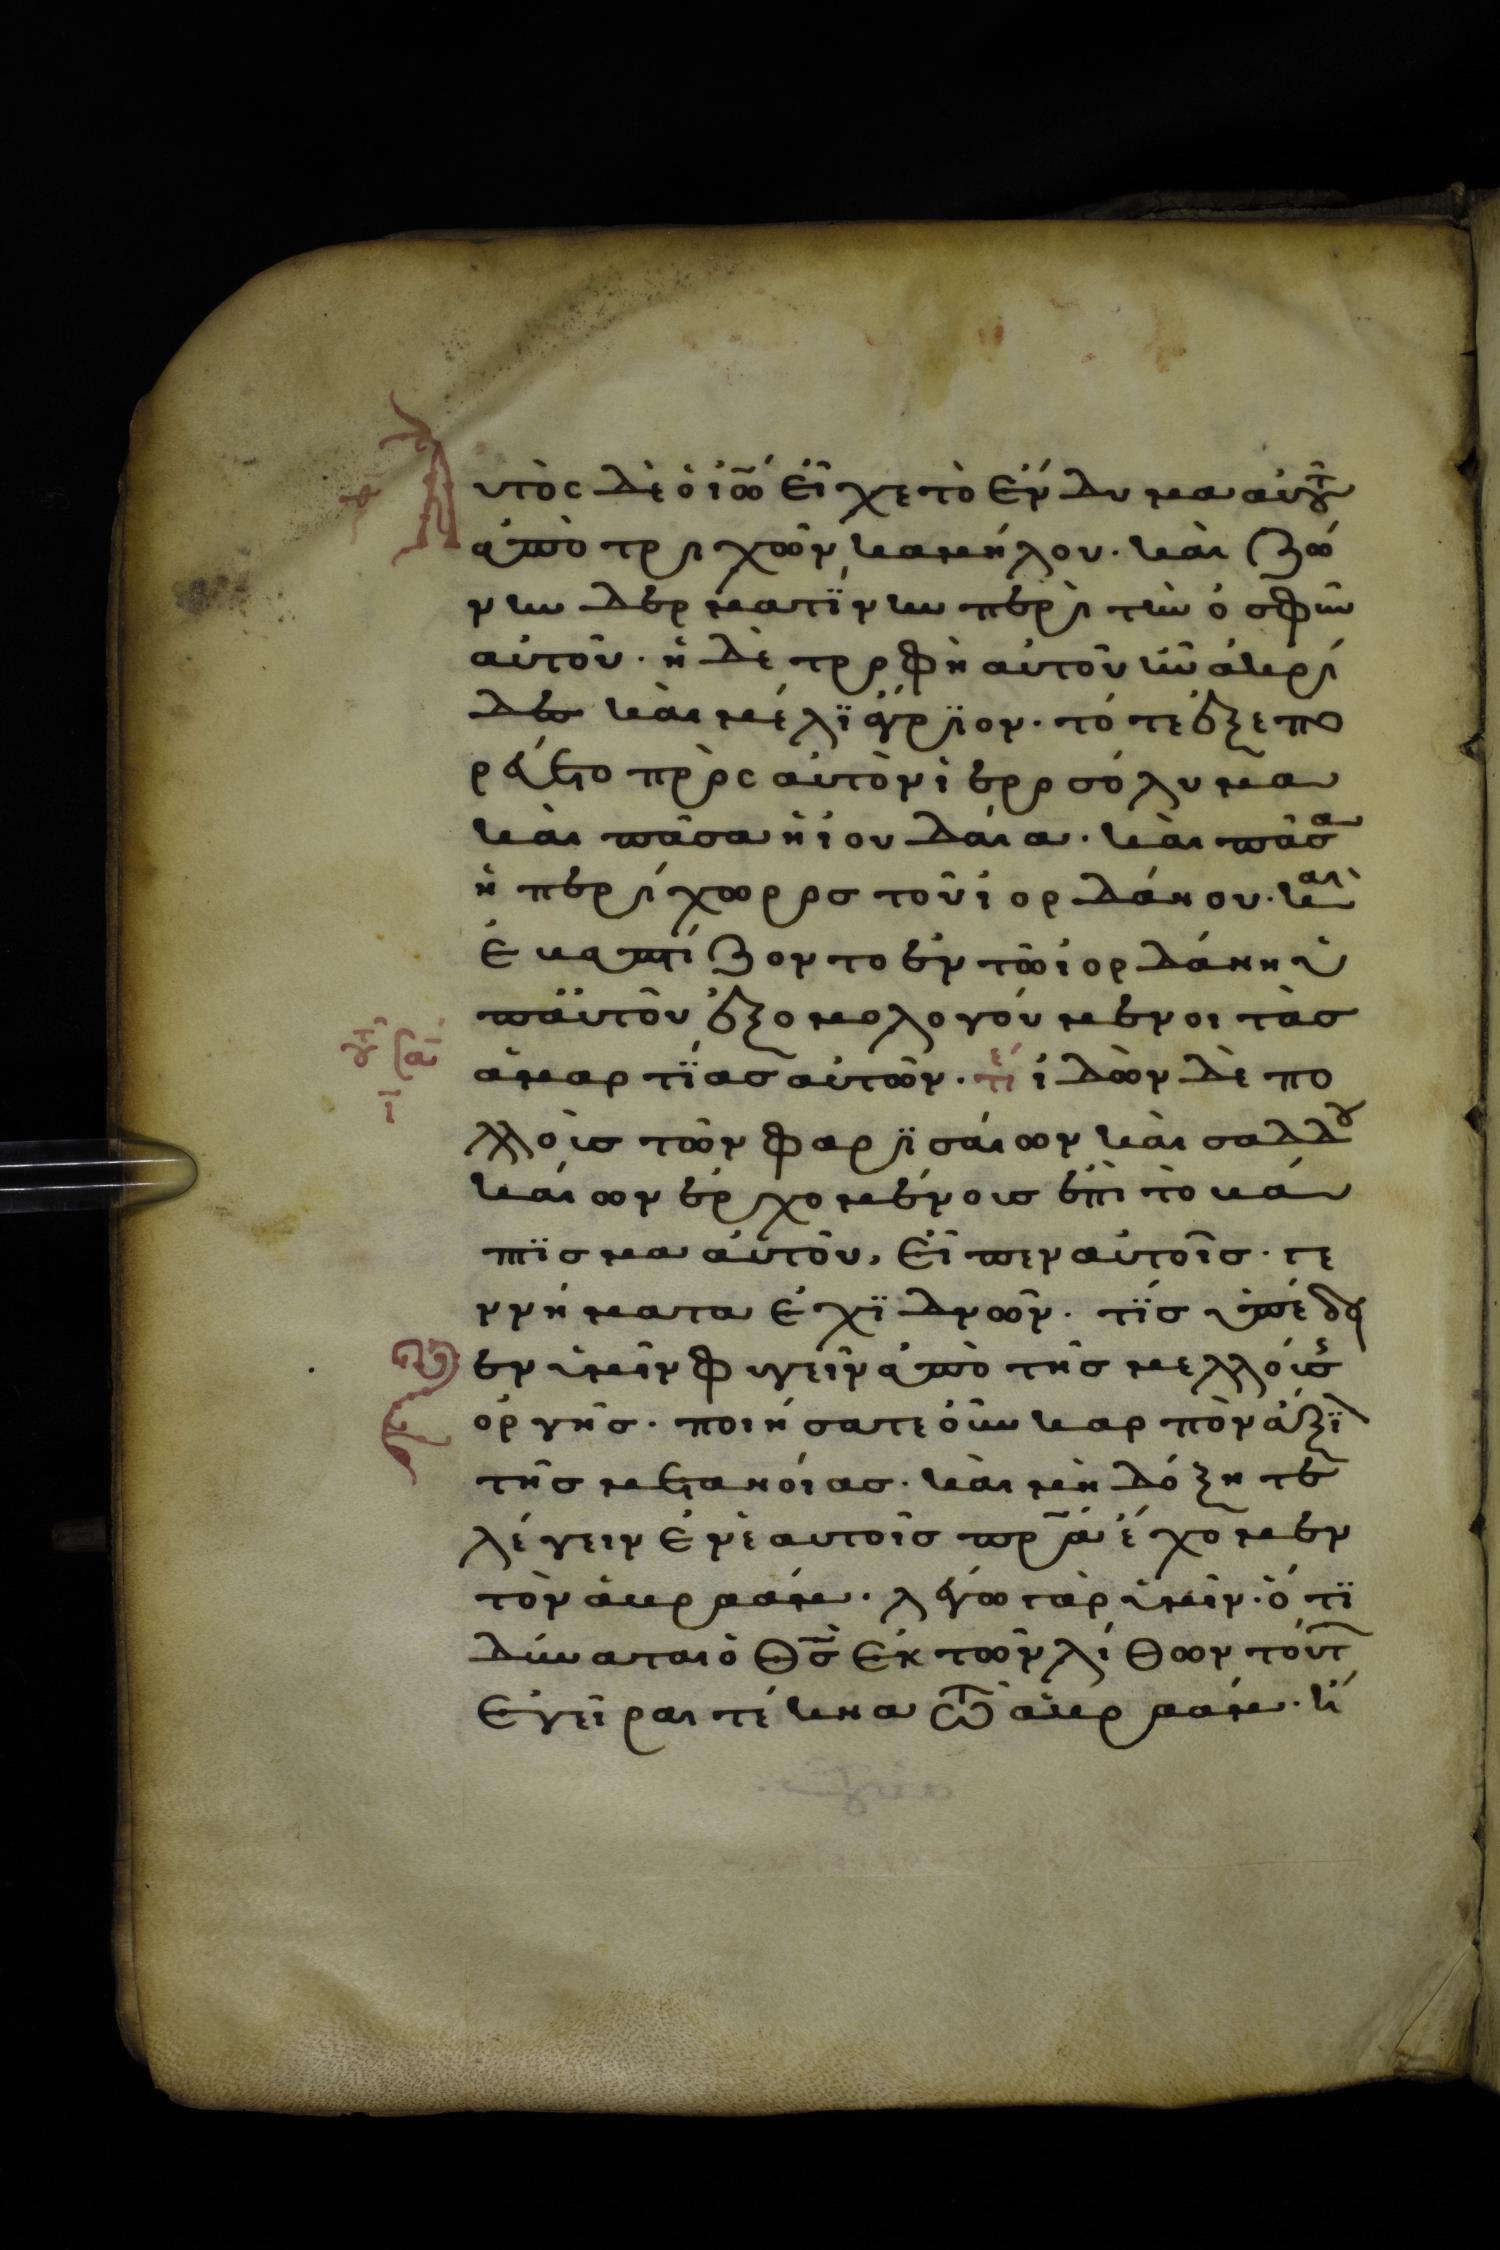 Αυτὸς δὲ ὁ ἰω̅ εἶχε τὸ ἔνδυμα αὐτοῦ
ἀπὸ τριχῶν καμήλου· καὶ ζώ
νην δερματίνην περὶ τὴν ὀσφῦν
αὐτοῦ· ἡ δὲ τροφὴ αὐτοῦ ἦν ἀκρί
δες καὶ μέλϊ ἄγρϊον· τότε ἐξεπο
ρεύετο πρὸς αὐτὸν ἱεροσόλυμα
καὶ πᾶσα ἡ ἰουδαία· καὶ πᾶσα
ἡ περίχωρος τοῦ ἰορδάνου· καὶ
ἐβαπτίζοντο ἐν τῶ ἰορδάνη ὑ
π' αὐτοῦ ἐξομολογούμενοι τὰς
ἁμαρτΐας αὐτῶν· τε̅ ἰδὼν δὲ πο
λλοὺς τῶν φαρϊσαίων καὶ σαδδου
καίων ἐρχομένους ἐπὶ τὸ βά
πτϊσμα αὐτοῦ, εἶπεν αὐτοῖς· γε
ννήματα ἐχϊδνῶν· τΐς ὑπέδει
ξεν ὑμῖν φυγεῖν ἀπὸ τῆς μελλούσης
ὀργῆς· ποιήσατε οὖν καρπὸν ἄξϊον
τῆς μετανοίας· καὶ μὴ δόξητε
λέγειν ἐν ἑαυτοῖς πρ̅α ἔχομεν
τὸν ἀβραάμ· λέγω γὰρ ὑμῖν· ὅτϊ
δύναται ὁ θ̅ς ἐκ τῶν λίθων τούτων
ἐγεῖραι τέκνα τῶ ἀβραάμ· ἤ